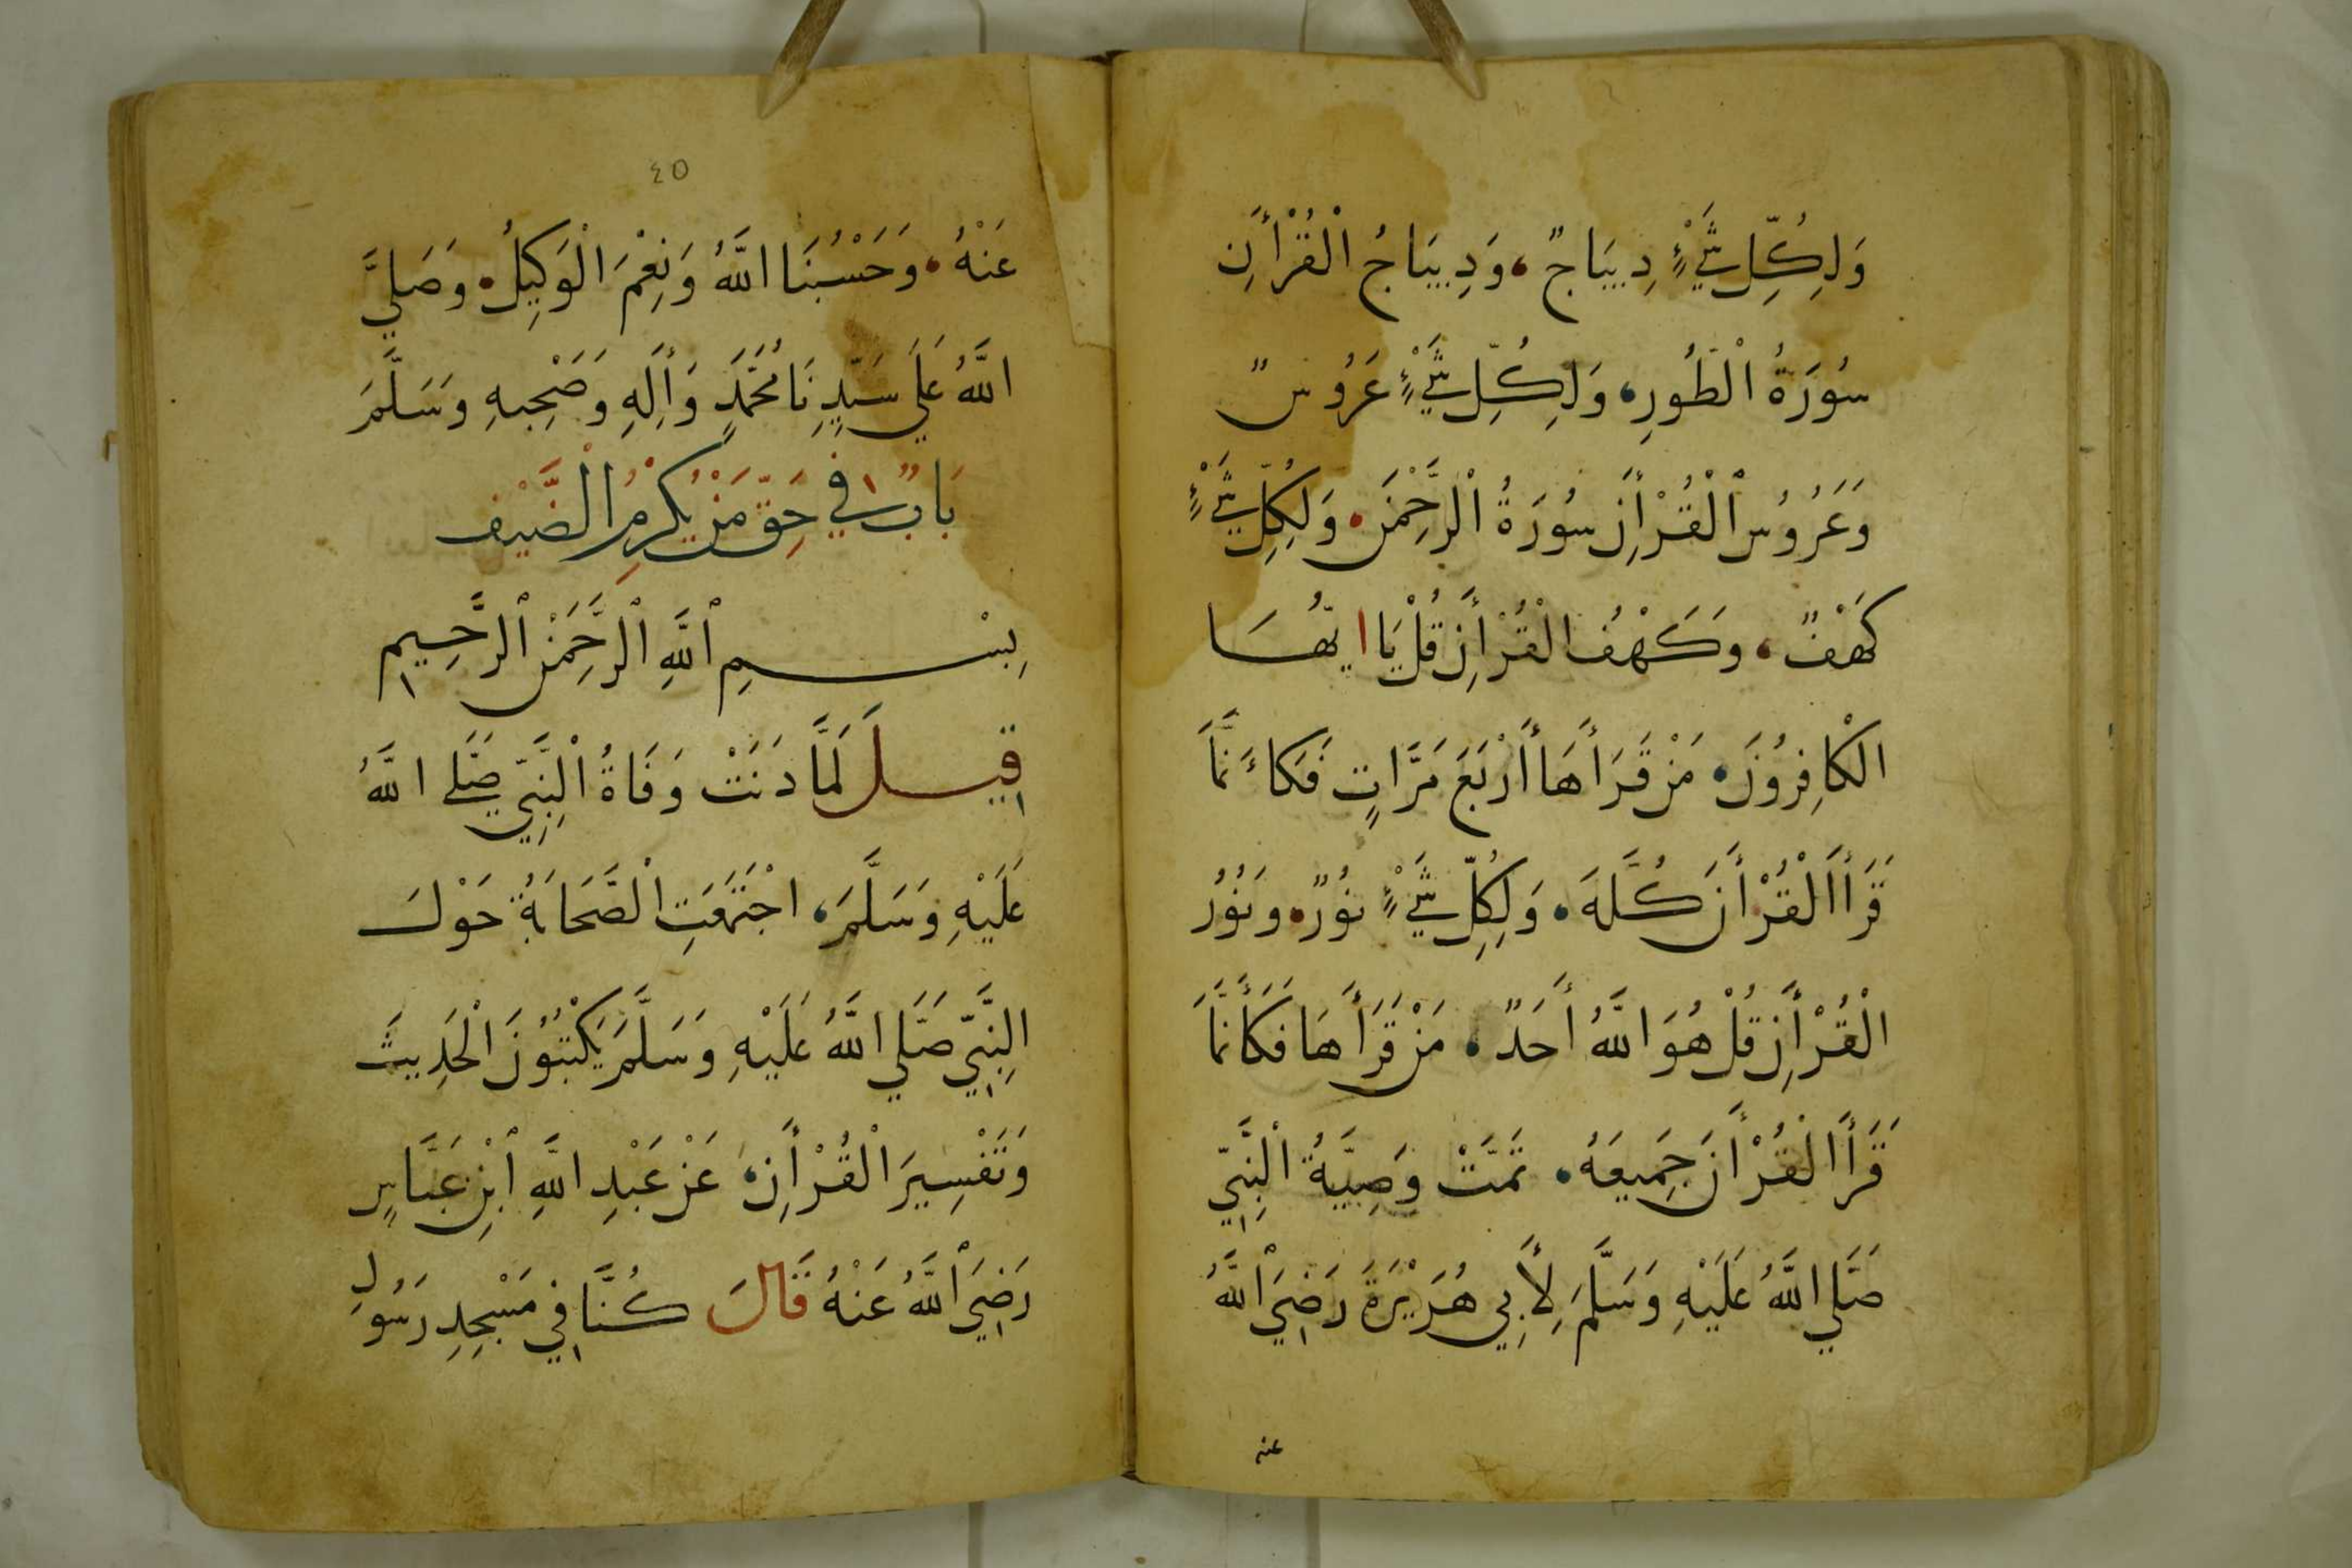 وَلِكُلِّ شَيْءٍ دِيبَاجٌ، وَدِيبَاجُ الْقُرْأَنِ
سُورَةُ الْطُورِ، وَلِكُلِّ شَيْءٍ عَرُوسٌ
وَعَرُوسُ الْقُرْأَنِ سُورَةُ الْرَّحْمَنِ وَلِكُلِّ شَيْءٍ
كَهْفٌ، وَكَهْفُ الْقُرْأَنِ قُلْ يَا ايُّهَا
الْكَافِرُونَ مَنْ قَرَأَهَا أَرْبَعَ مَرَّاتٍ فَكَاَنَّمَا
قَرَأَ الْقُرْأَنَ كُلَّهَ، وَلِكُلِّ شَيْءٍ نُورٌ، وَنُورُ
الْقُرْأَنِ قُلْ هُوَ اللَّهُ أَحَدٌ، مَنْ قَرَأَهَا فَكَأَنَّمَا
قَرَأَ الْقُرْأَنَ جَمِيعَهُ، تَمَّتْ وَصِيَّةُ الْنَّبِيِّ
صَلَّي اللَّهُ عَلَيْهِ وَسَلَّمَ لِأَبِي هُرَيْرَةَ رَضِيَ اللَّهُ
عنه
٤٥
عَنْهُ، وَحَسْبُنَا اللَّهُ وَنِعْمَ الْوَكِيلُ، وَصَلَّي
اللَّهُ عَلَي سَيِّدِنَا مُحَمَّدٍ وَأَلِهِ وَصَحْبِهِ وَسَلَّمَ
بَابٌ فِي حَقِّ مَنْ يُكْرِمُ الْضَّيْف
بِسْمِ اللَّهِ الْرَّحْمَنِ الْرَّحِيمِ
قِيلَ لَمَّا دَنَتْ وَفَاةُ الْنَّبِيِّ صَلَّي اللَّهُ
عَلَيْهِ وَسَلَّمَ، اجْتَمَعَتِ الْصَّحَابَةُ حَوْلَ
النَّبِيِّ صَلَّي اللَّهُ عَلَيْهِ وَسَلَّمَ يَكْتُبُونَ الْحَدِيثَ
وَتَفْسِيرَ الْقُرْأَنِ، عَنْ عَبْدِ اللَّهِ ابْنِ عَبَّاسٍ
رَضِيَ اللَّهُ عَنْهُ قَالَ كُنَّا فِي مَسْجِدِ رَسُولِ